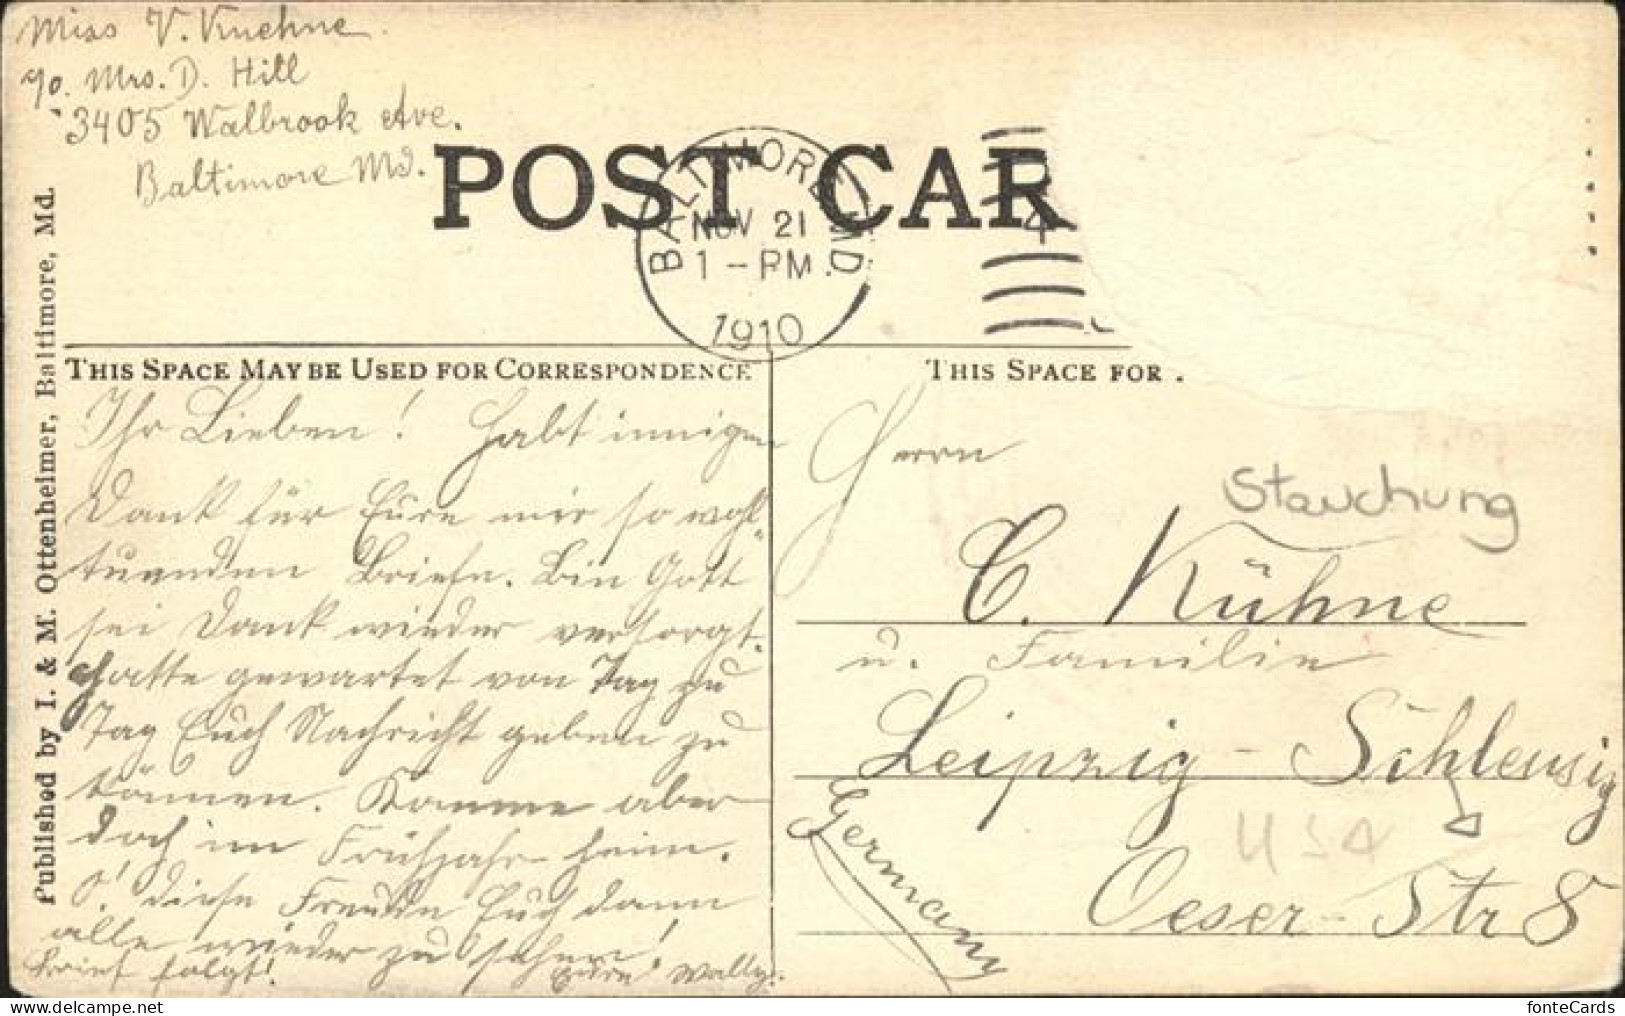 Miss V. Kuehne.
c/o. Mrs. D. Hill
3405 Walbrook Ave.
Baltimore Md.
POST CAR
BALTIMORE, MD.
NOV 21
1-PM
1910
Published by I. & M. Ottenheimer, Baltimore, Md.
THIS SPACE MAY BE USED FOR CORRESPONDENCE
THIS SPACE FOR
Ihr Lieben! Habt innigen
Dank für Eure mir so wohl-
tuenden Briefe. Bin Gott
sei Dank wieder versorgt.
Hatte gewartet von Tag zu
Tag Euch Nachricht geben zu
können. Komme aber
doch im Frühjahr heim.
O! diese Freude Euch dann
alle wieder zu sehen!
Brief folgt! Eure Wally.
Herrn
Stauchung
C. Kühne
u. Familie
Leipzig - Schleussig
USA
Oeser-Str 8
Germany
fonteCards